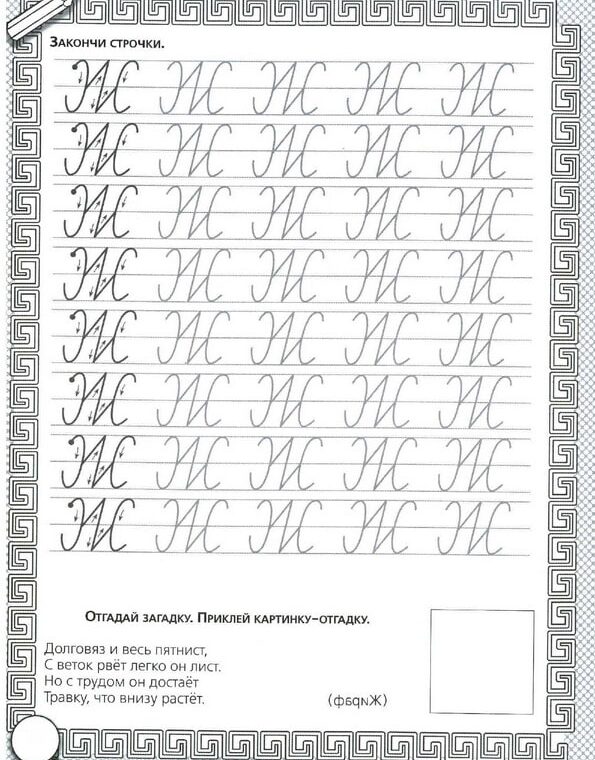 Закончи строчки.
Ж Ж Ж Ж Ж
Ж Ж Ж Ж Ж
Ж Ж Ж Ж Ж
Ж Ж Ж Ж Ж
Ж Ж Ж Ж Ж
Ж Ж Ж Ж Ж
Ж Ж Ж Ж Ж
Ж Ж Ж Ж Ж
Отгадай загадку. Приклей картинку–отгадку.
Долговяз и весь пятнист,
С веток рвёт легко он лист.
Но с трудом он достаёт
Травку, что внизу растёт.
(Жираф)